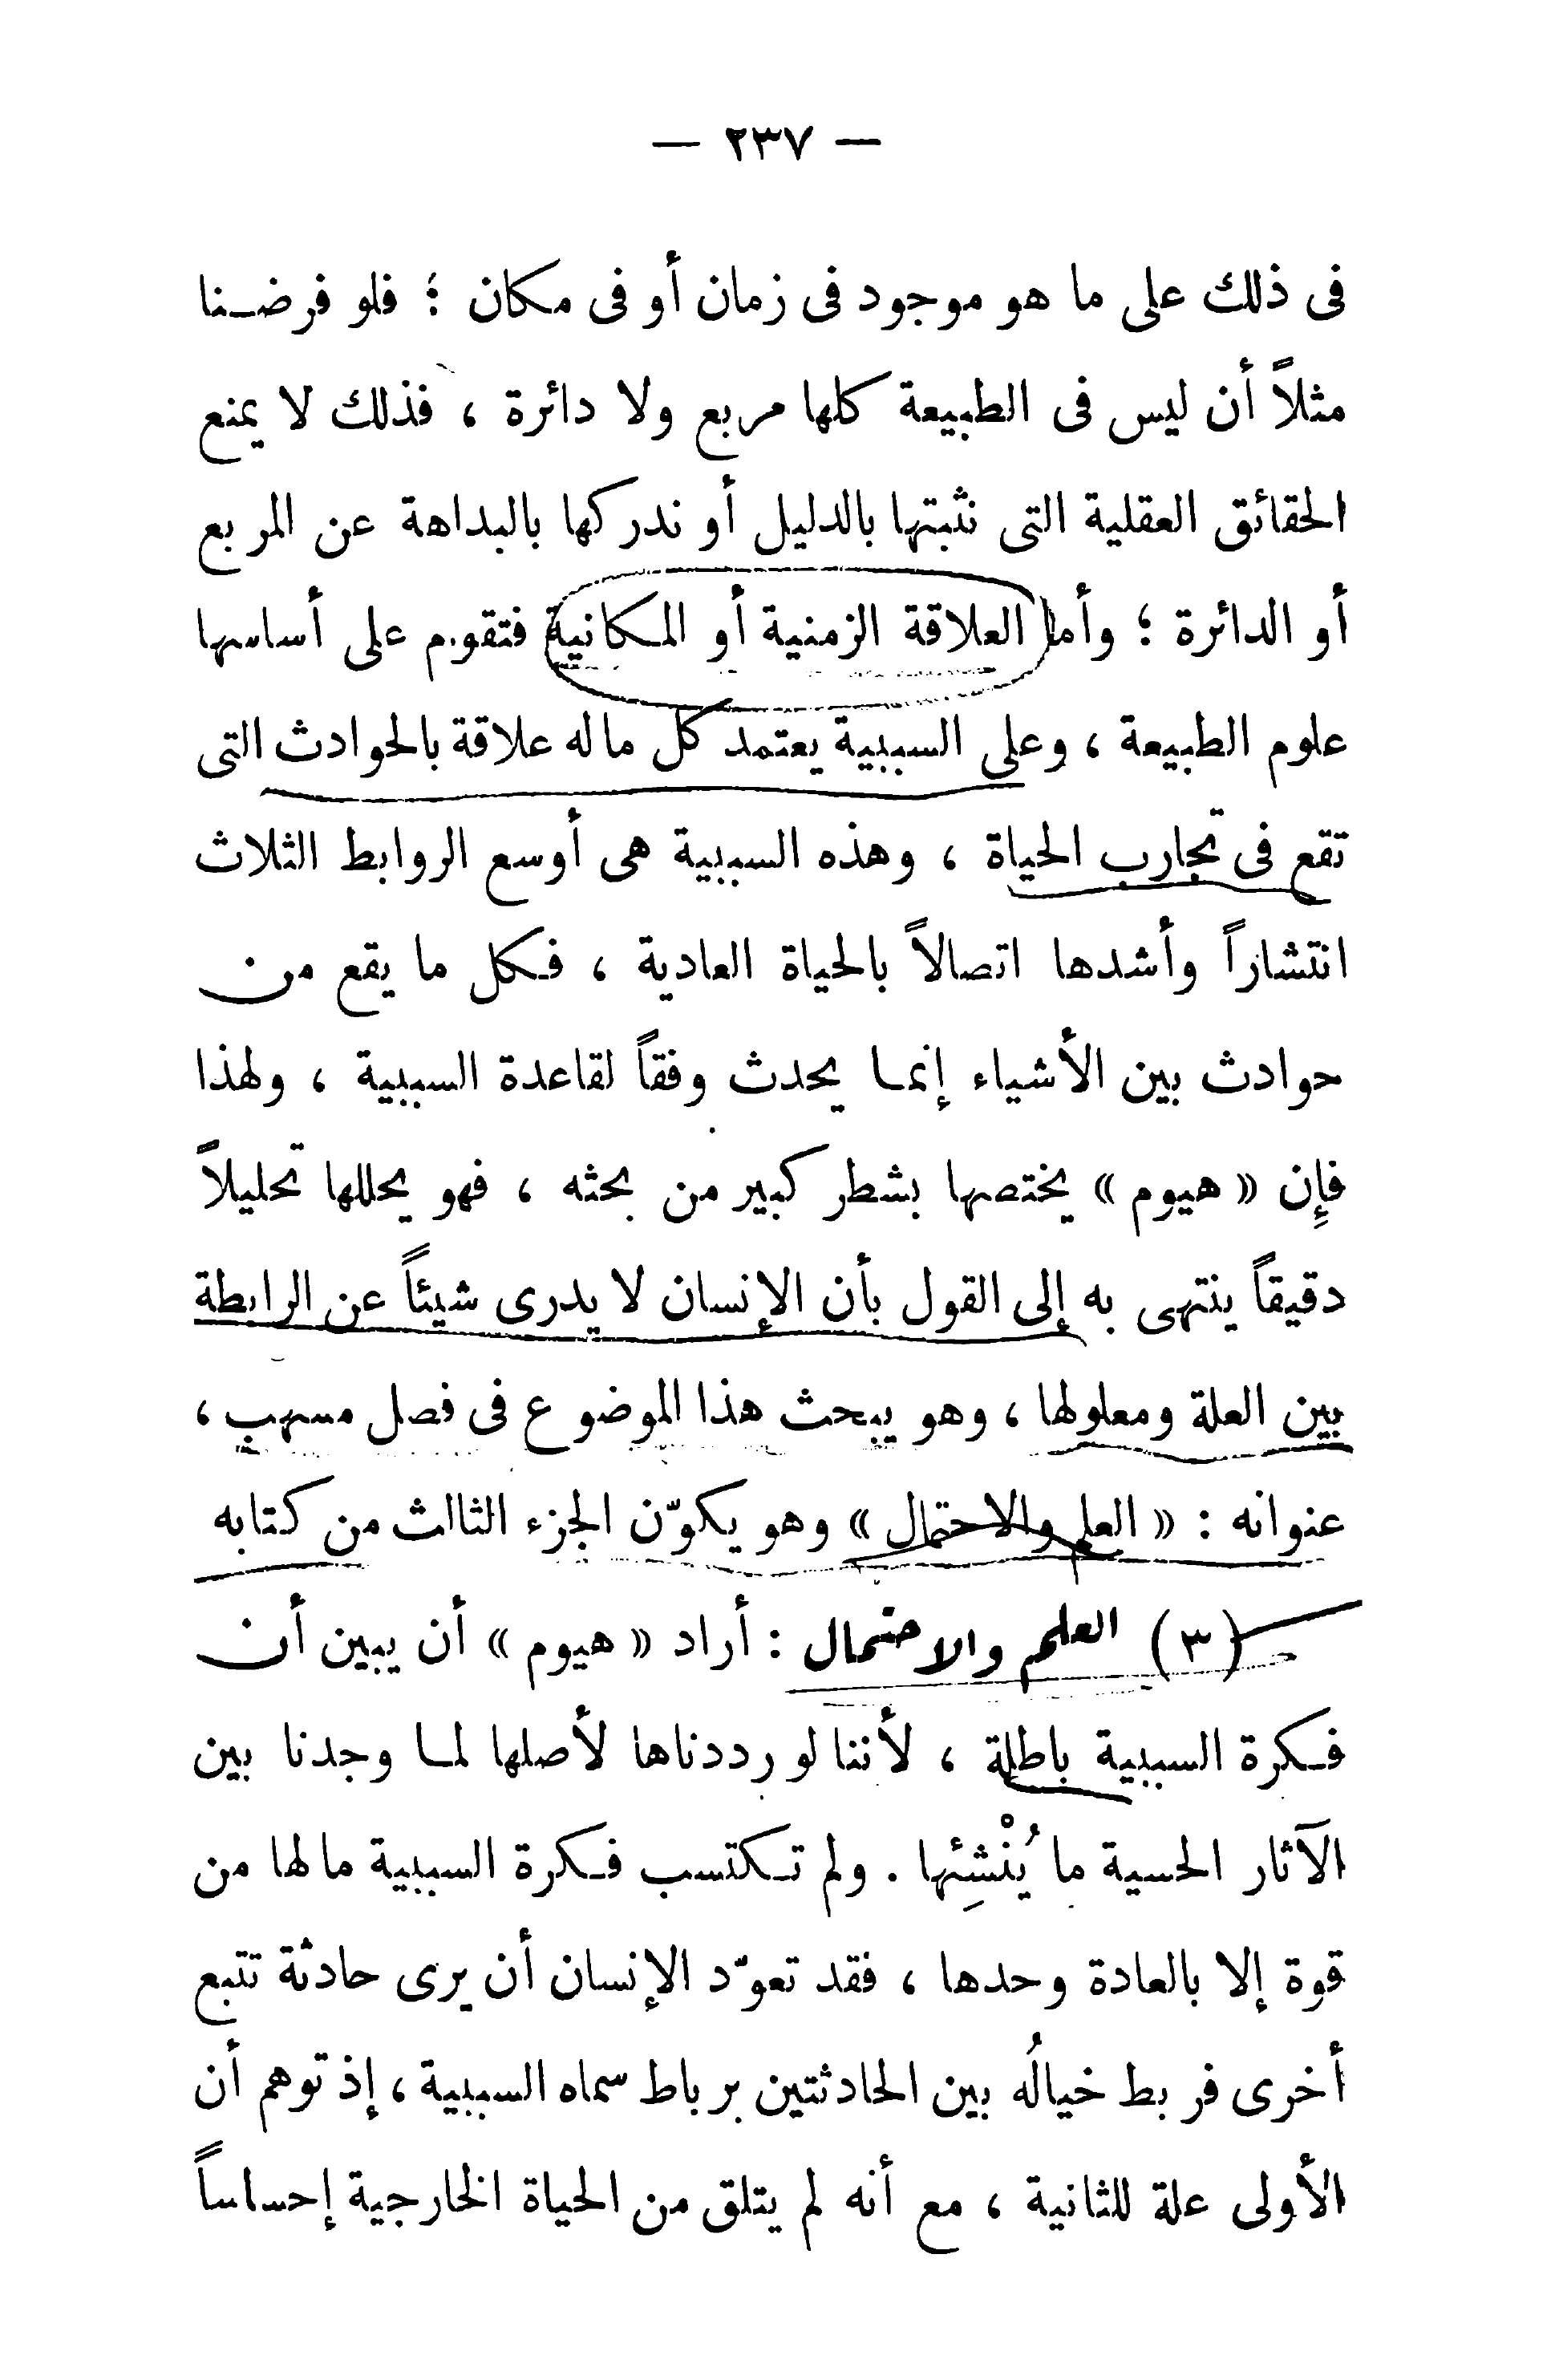 — ٢٣٧ —
فى ذلك على ما هو موجود فى زمان أو فى مكان ؛ فلو فرضـنا
مثلاً أن ليس فى الطبيعة كلها مربع ولا دائرة ، فذلك لا يمنع
الحقائق العقلية التى نثبتها بالدليل أو ندركها بالبداهة عن المربع
أو الدائرة ؛ وأما العلاقة الزمنية أو المـكانية فتقوم على أساسها
علوم الطبيعة ، وعلى السببية يعتمد كل ماله علاقة بالحوادث التى
تقع فى تجارب الحياة ، وهذه السببية هى أوسع الروابط الثلاث
انتشاراً وأشدها اتصالاً بالحياة العادية ، فـكل ما يقع من
حوادث بين الأشياء إنمـا يحدث وفقاً لقاعدة السببية ، ولهذا
فإِن « هيوم » يختصها بشطر كبير من بحثه ، فهو يحللها تحليلاً
دقيقاً ينتهى به إلى القول بأن الإنسان لا يدرى شيئاً عن الرابطة
بين العلة ومعلولها ، وهو يبحث هذا الموضوع فى فصل مسهب ،
عنوانه : « العلم والاحتمال » وهو يكوّن الجزء الثالث من كتابه
(٣) العلم والاحتمال : أراد « هيوم » أن يبين أن
فـكرة السببية باطلة ، لأننا لو رددناها لأصلها لمـا وجدنا بين
الآثار الحسية ما يُنْشِئها . ولم تـكتسب فـكرة السببية مالها من
قوة إلا بالعادة وحدها ، فقد تعوّد الإنسان أن يرى حادثة تتبع
أخرى فربط خيالُه بين الحادثتين برباط سماه السببية ، إذ توهم أن
الأولى علة للثانية ، مع أنه لم يتلق من الحياة الخارجية إحساساً